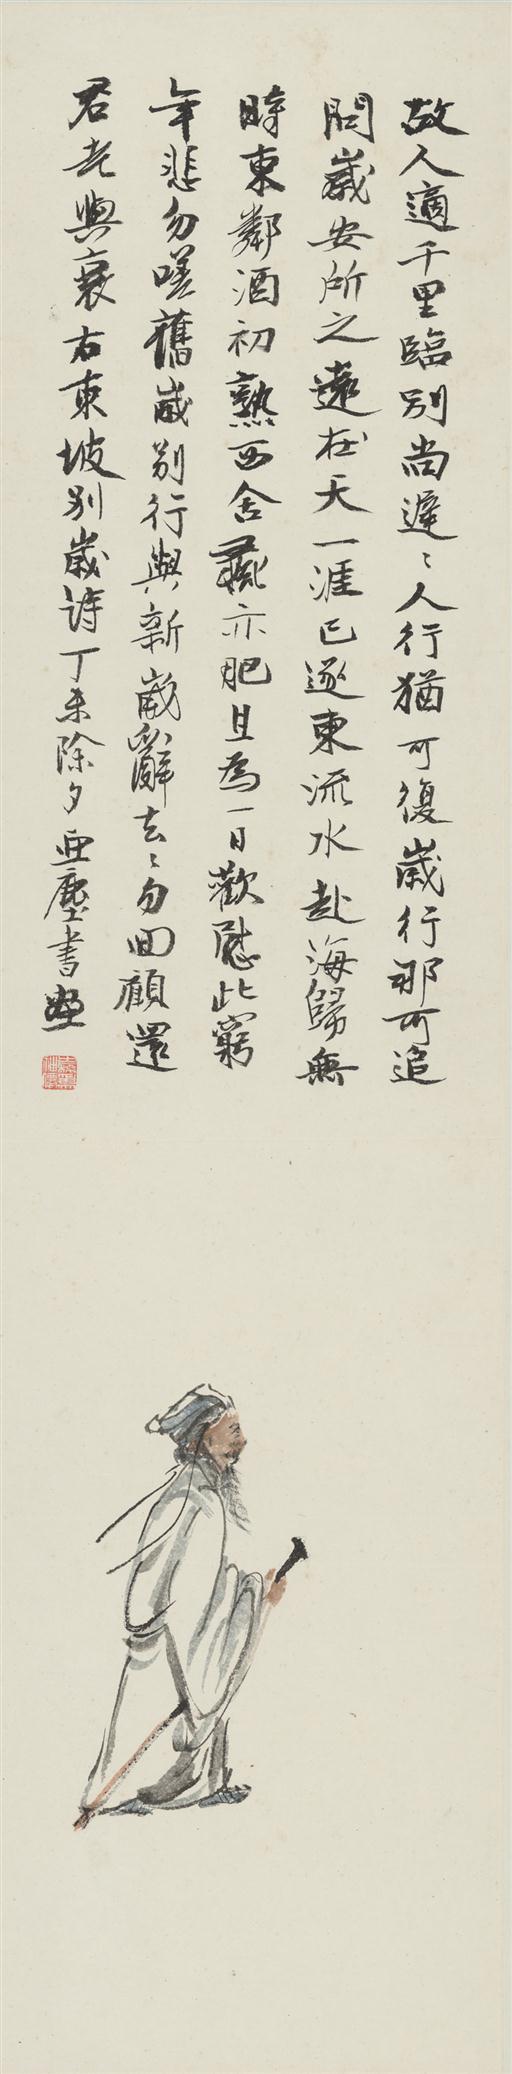 故人適千里臨別尚遲〻人行猶可復歲行那可追
問歲安所之遠在天一涯已逐東流水赴海歸無
時東鄰酒初熟西舍彘亦肥且為一日歡慰此窮
年悲勿嗟舊歲別行與新歲辭去〻勿回顧還
君老與衰右東坡別歲詩丁未除夕亞塵書畫